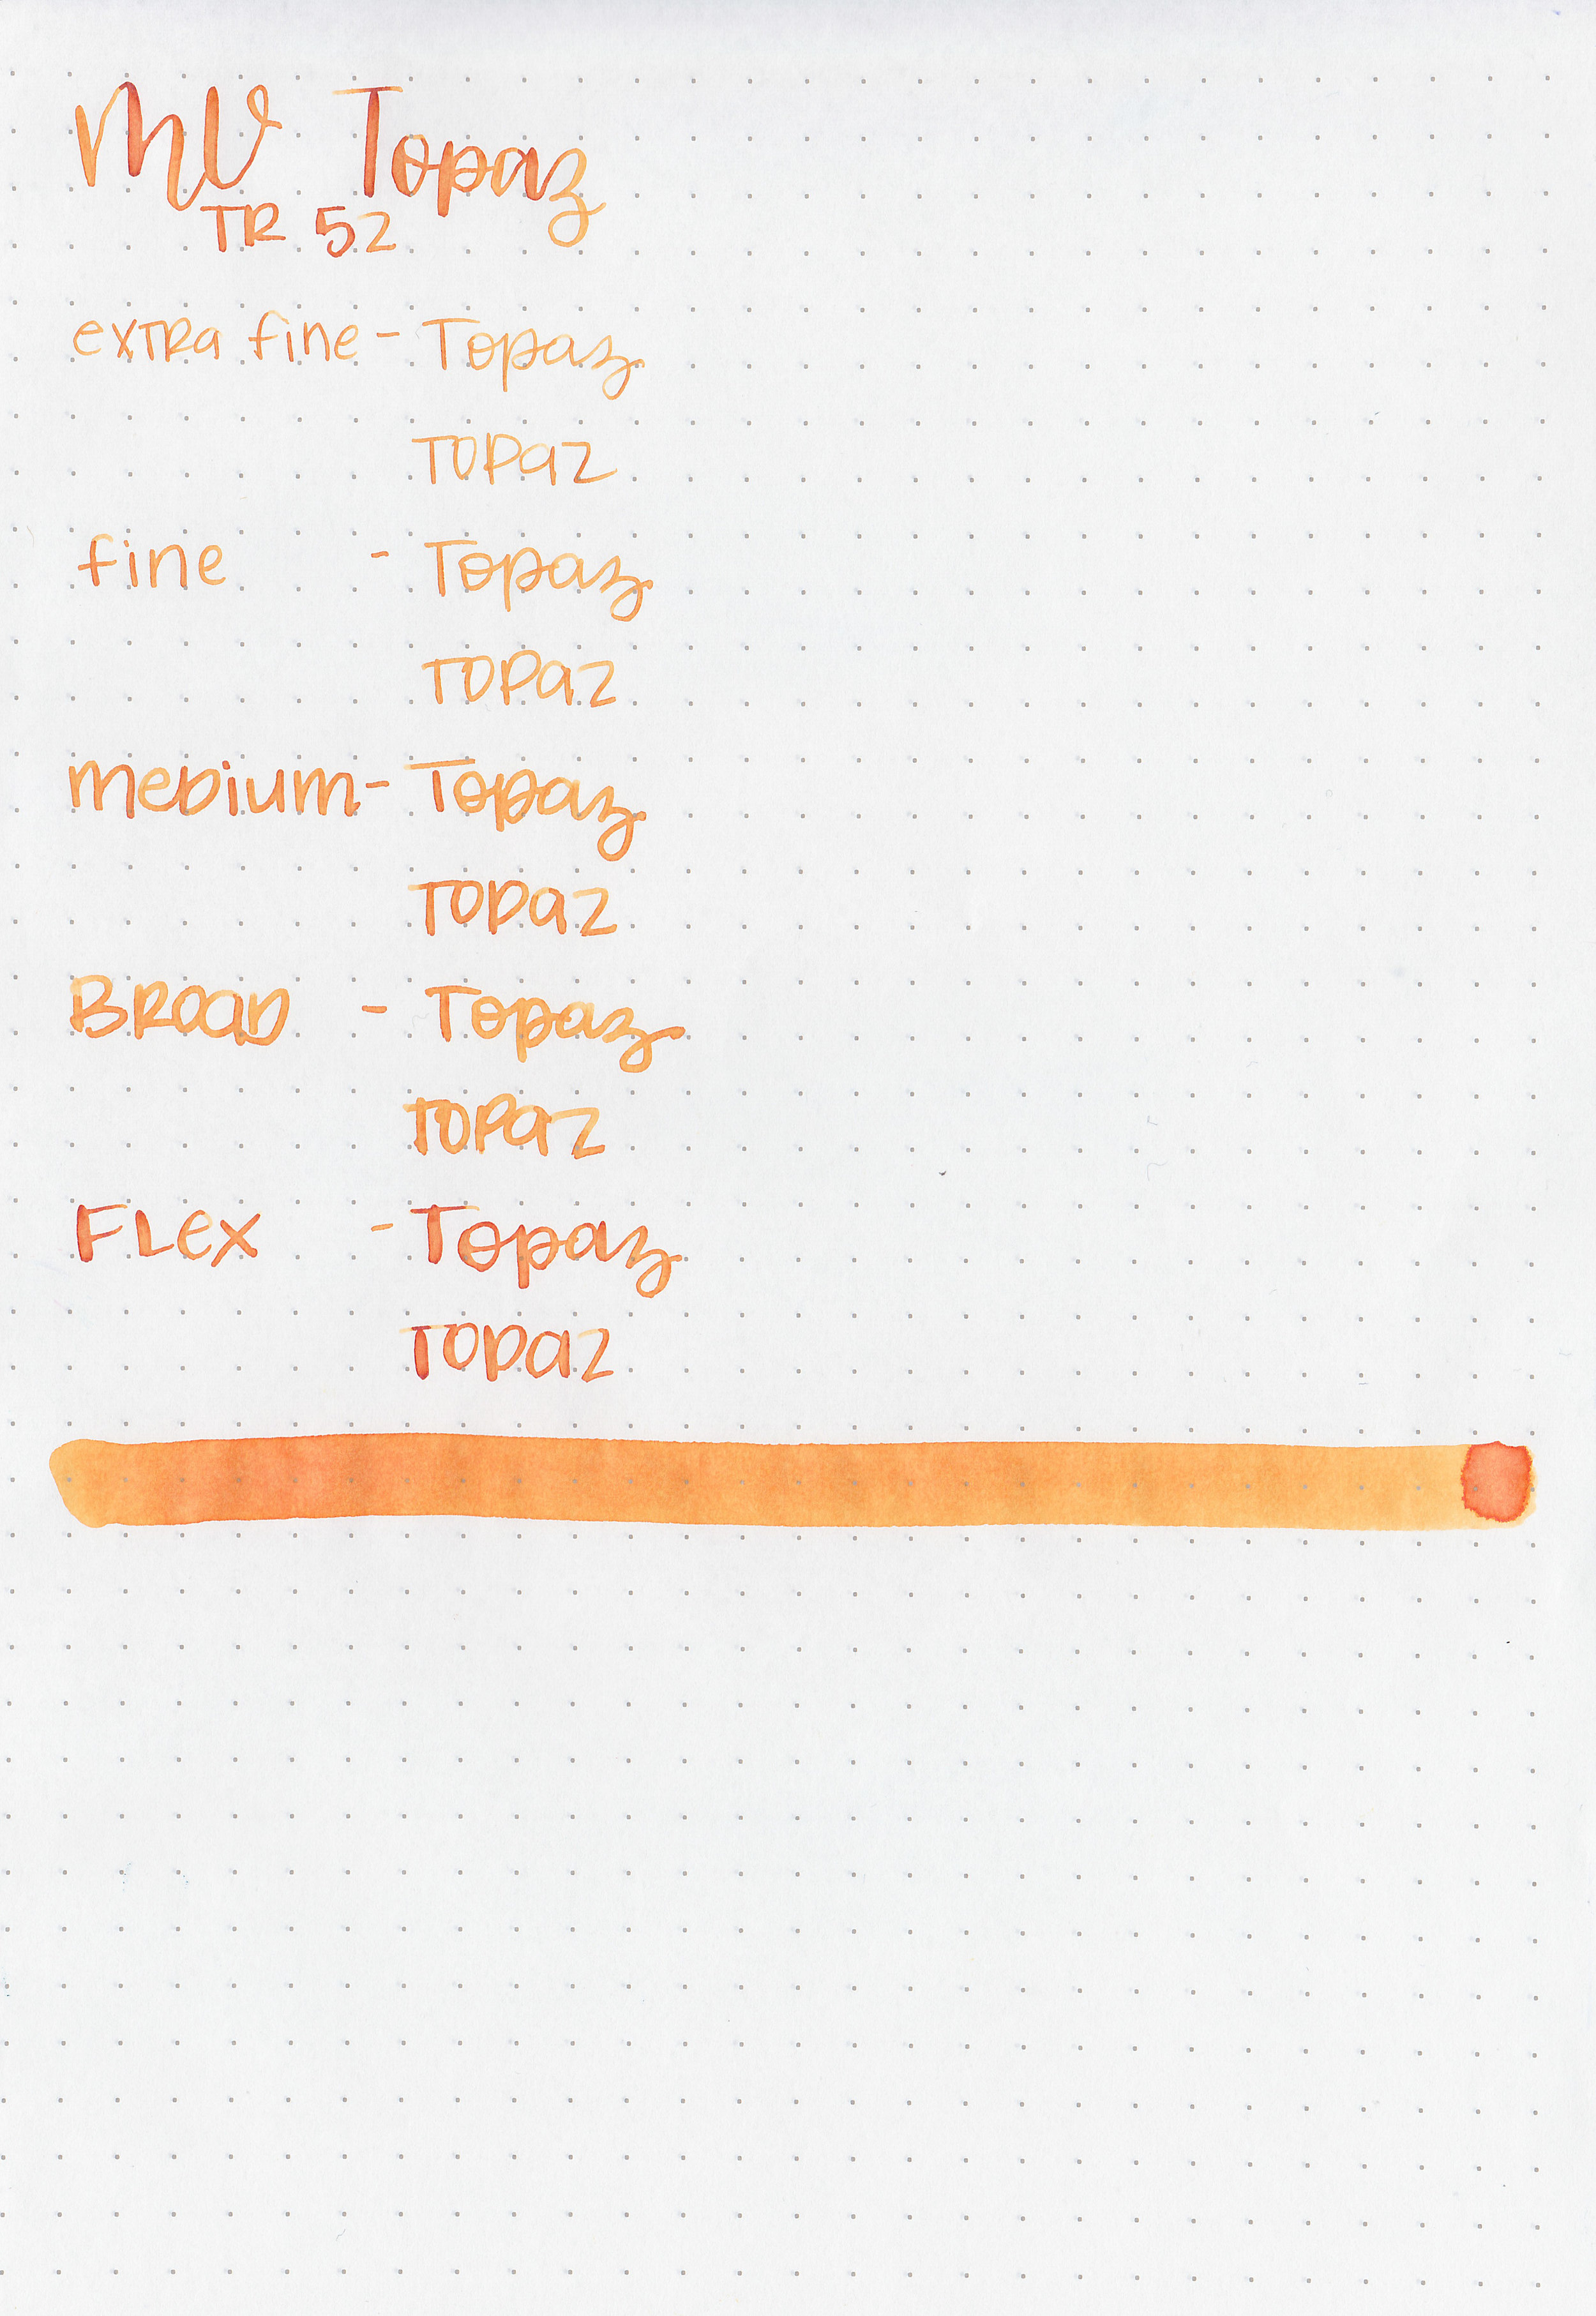 MV Topaz
TR 52
extra fine - Topaz
Topaz
fine - Topaz
Topaz
medium - Topaz
Topaz
Broad - Topaz
Topaz
Flex - Topaz
Topaz